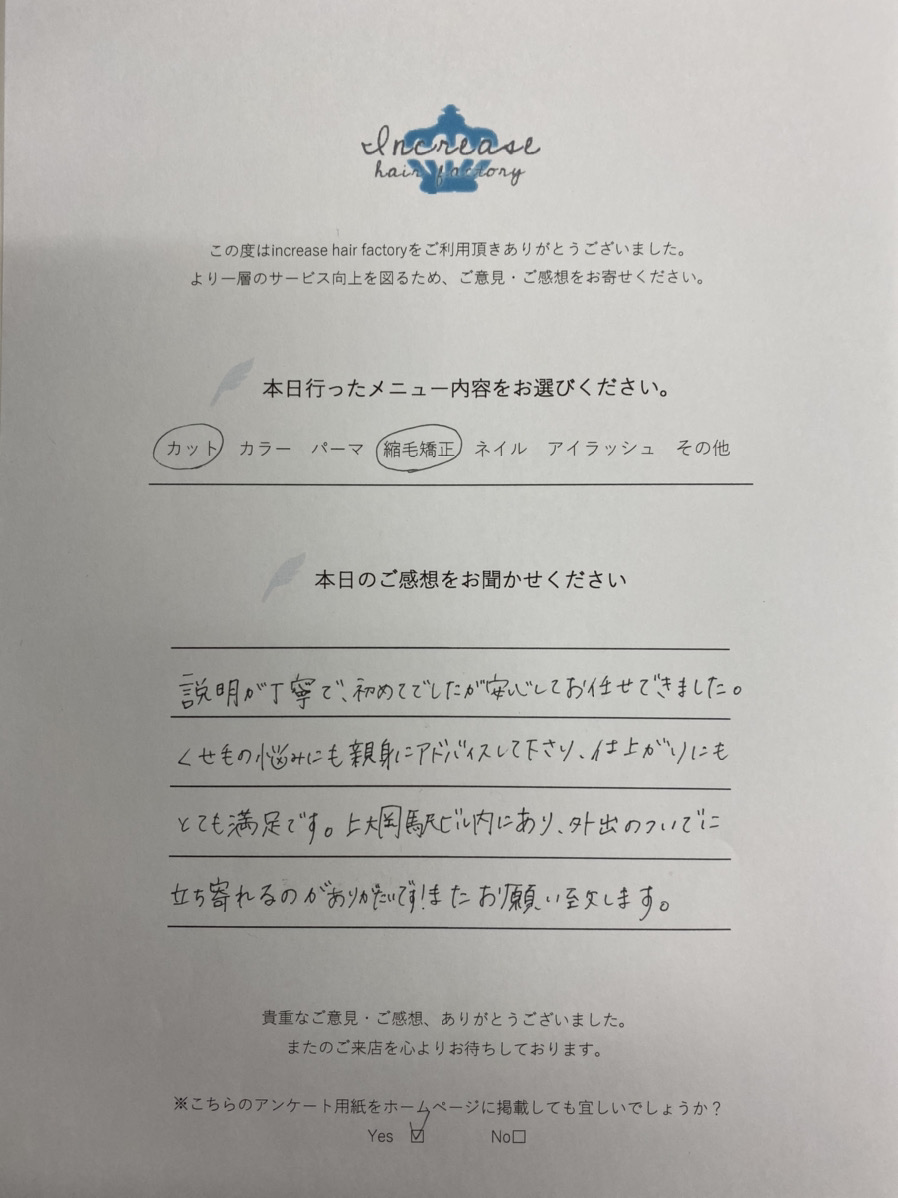 Increase
hair factory
この度はincrease hair factoryをご利用頂きありがとうございました。
より一層のサービス向上を図るため、ご意見・ご感想をお寄せください。
本日行ったメニュー内容をお選びください。
カット カラー パーマ 縮毛矯正 ネイル アイラッシュ その他
本日のご感想をお聞かせください
説明が丁寧で、初めてでしたが安心してお任せできました。
くせ毛の悩みにも親身にアドバイスして下さり、仕上がりにも
とても満足です。上大岡駅ビル内にあり、外出のついでに
立ち寄れるのがありがたいです!またお願い致します。
貴重なご意見・ご感想、ありがとうございました。
またのご来店を心よりお待ちしております。
※こちらのアンケート用紙をホームページに掲載しても宜しいでしょうか?
Yes ☑ No□